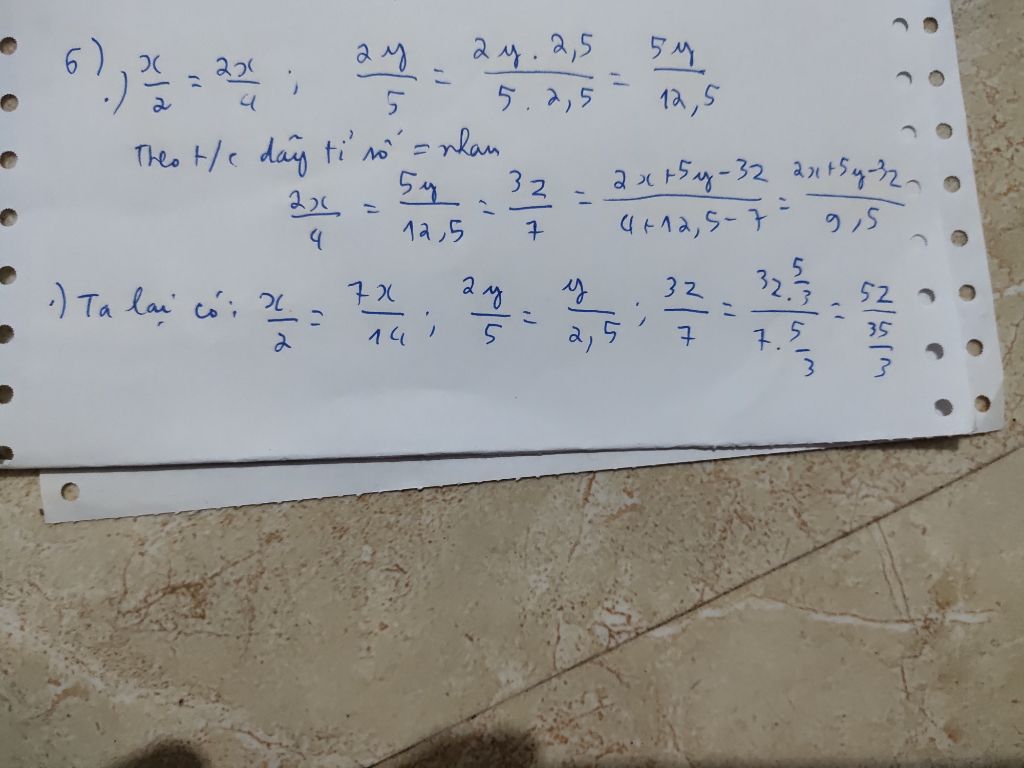 6) .) x/2 = 2x/4 ; 2y/5 = 2y. 2,5/5. 2,5 = 5y/12,5
Theo t/c dãy tỉ số = nhau
2x/4 = 5y/12,5 = 3z/7 = 2x+5y-3z/4+12,5-7 = 2x+5y-3z/9,5
.) Ta lại có: x/2 = 7x/14 ; 2y/5 = y/2,5 ; 3z/7 = 3z. 5/3/7. 5/3 = 5z/35/3